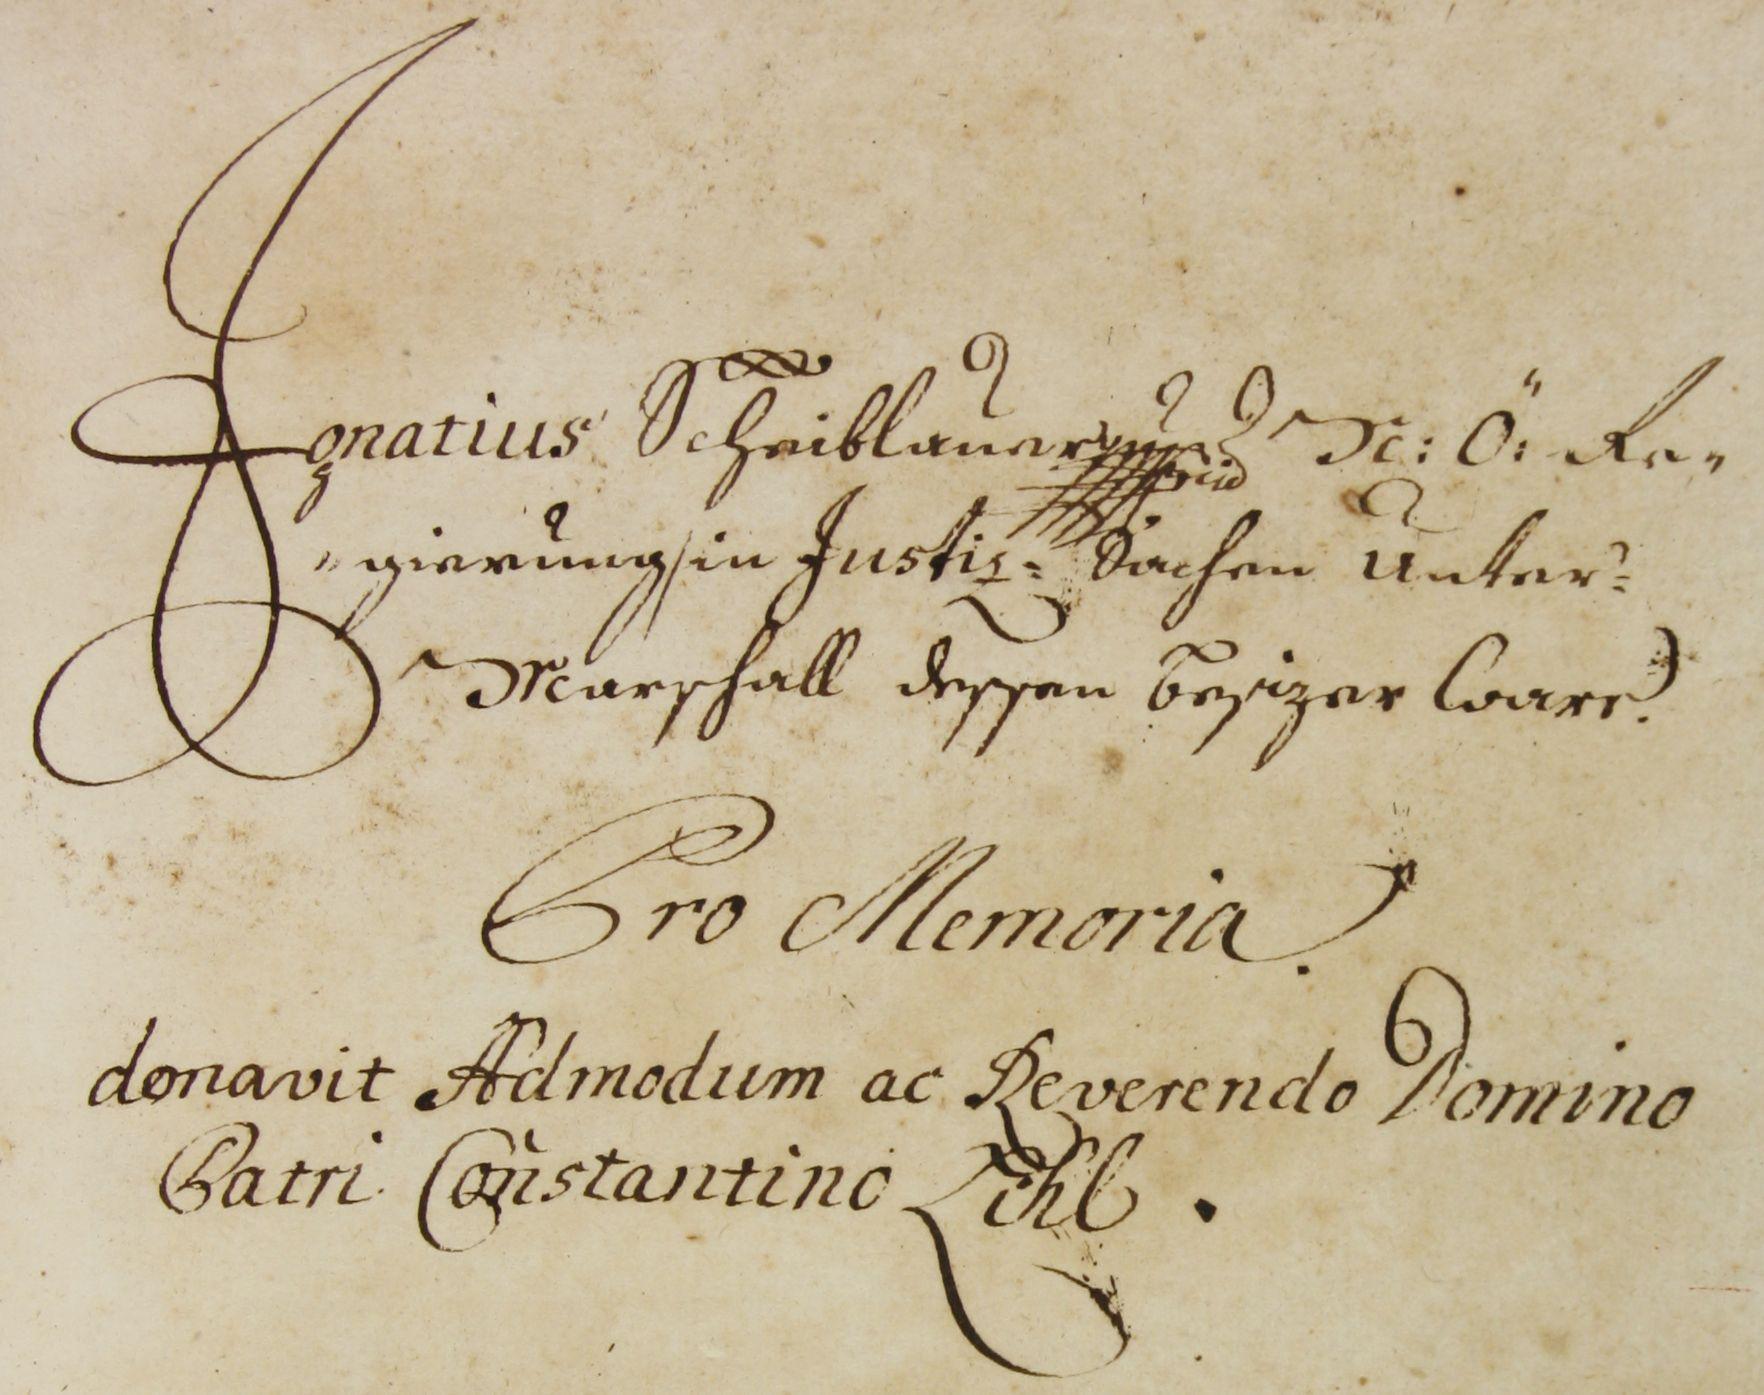 Ignatius Scheiblauer N: Ö: Re„
„gierung in Justiz= Sachen Unter=
Marschall dessen besizer ware.
Pro Memoria.
donavit Admodum ac Reverendo Domino
Patri Constantino Lihl.